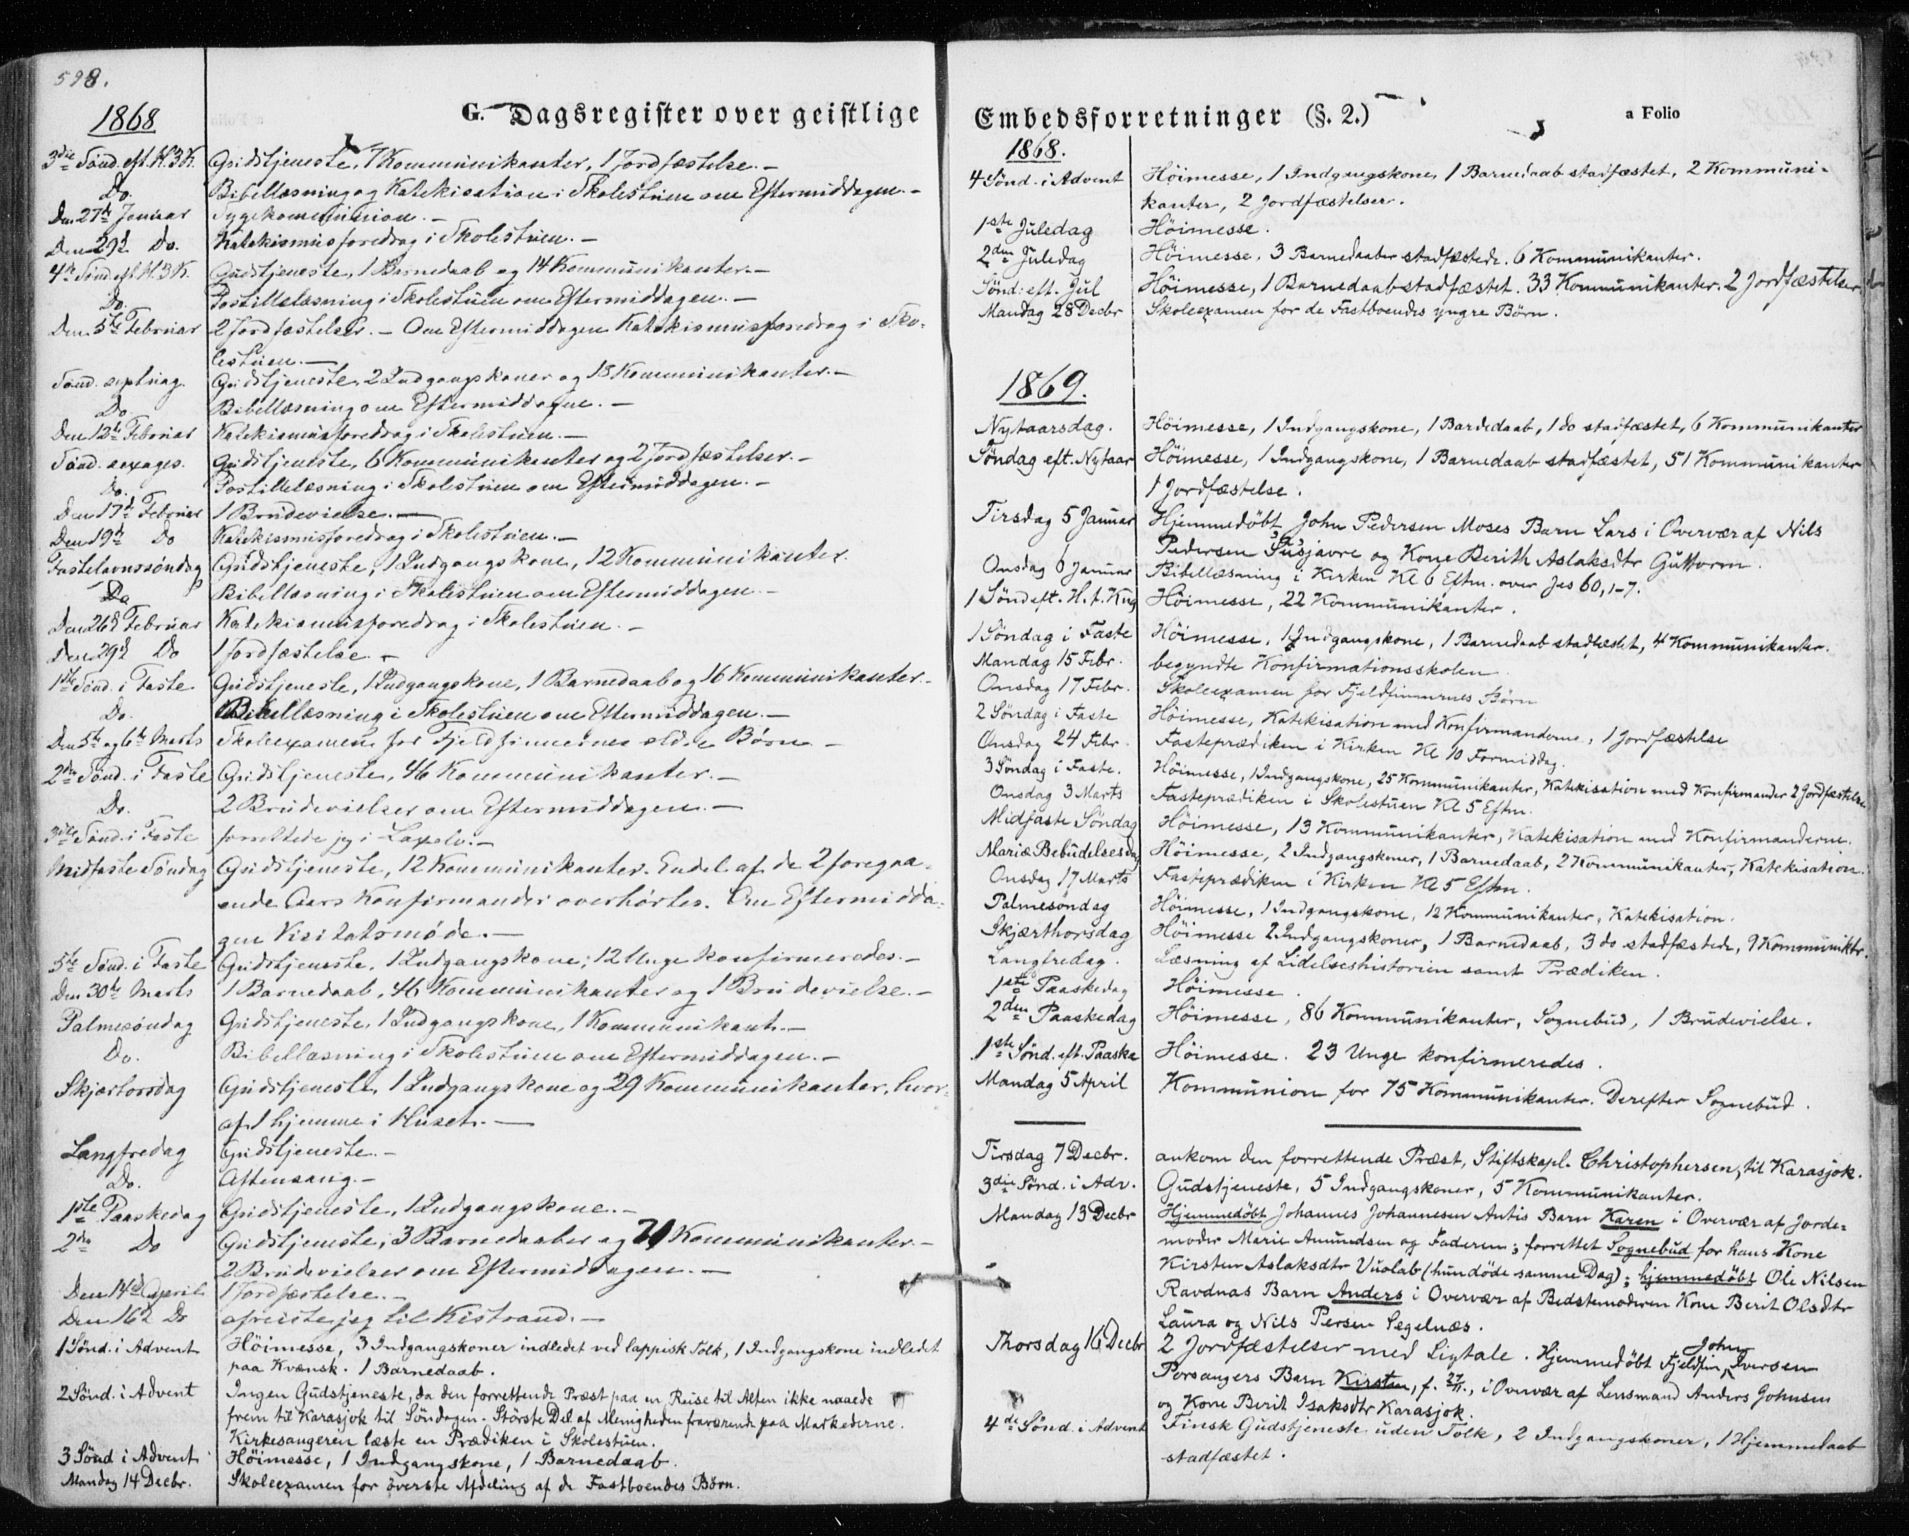 598.
G. Dagsregister over geistlige
1868
3die Sønd. eft. H.3K. Gudstjeneste, 7 Kommunikanter, 1 Jordfæstelse.—
Do. Bibellæsning og Katekisation i Skolestuen om Eftermiddagen.—
Den 27de Januar Sygekommunion.—
Den 29d Do. Katekismusforedrag i Skolestuen.—
4de Sønd. eft. H.3K. Gudstjeneste, 1 Barnedaab og 14 Kommunikanter.—
Do. Postillelæsning i Skolestuen om Eftermiddagen.—
Den 5te Februar 2 Jordfæstelser.— Om Eftermiddagen Katekismusforedrag i Sko-
lestuen.—
Sønd. septuag. Gudstjeneste, 2 Indgangskoner og 18 Kommunikanter.—
Do. Bibellæsning om Eftermiddagen.—
Den 12te Februar Katekismusforedrag i Skolestuen.—
Sønd. sexages. Gudstjeneste, 6 Kommunikanter og 2 Jordfæstelser.—
Do. Postillelæsning i Skolestuen om Eftermiddagen.—
Den 17d Februar 1 Brudevielse.—
Den 19d Do Katekismusforedrag i Skolestuen.—
Fastelavnssøndag Gudstjeneste, 1 Indgangskone, 12 Kommunikanter.
Do Bibellæsning i Skolestuen om Eftermiddagen.—
Den 26d Februar Katekismusforedrag i Skolestuen.—
Den 29d Do 1 Jordfæstelse.—
1ste Sønd. i Faste Gudstjeneste, 1 Indgangskone, 1 Barnedaab og 16 Kommunikanter.—
Do. Bibellæsning i Skolestuen om Eftermiddagen.—
Den 5te og 6te Marts Skoleexamen for Fjeldfinnernes ældre Børn.—
2den Sønd. i Faste Gudstjeneste, 46 Kommunikanter.—
Do. 2 Brudevielser om Eftermiddagen.—
3die Sønd. i Faste forrettede jeg i Laxelv.—
Midfaste Søndag Gudstjeneste, 12 Kommunikanter. Endel af de 2 foregaa-
ende Aars Konfirmander overhørtes. Om Eftermidda-
gen Visitatsmøde.—
5te Sønd. i Faste Gudstjeneste, 1 Indgangskone; 12 Unge konfirmeredes.—
Den 30te Marts 1 Barnedaab, 46 Kommunikanter og 1 Brudevielse.—
Palmesøndag Gudstjeneste, 1 Indgangskone, 1 Kommunikant.—
Do. Bibellæsning i Skolestuen om Eftermiddagen.—
Skjærtorsdag Gudstjeneste, 1 Indgangskone og 29 Kommunikanter, hvor-
af 1 hjemme i Huset.—
Langfredag Gudstjeneste.—
Do. Aftensang.—
1ste Paaskedag Gudstjeneste, 1 Indgangskone.—
2den Do Gudstjeneste, 3 Barnedaaber og 21 Kommunikanter.—
2 Brudevielser om Eftermiddagen.—
Den 14d April 1 Jordfæstelse.—
Den 16d Do afreiste jeg til Kistrand.—
1 Sønd. i Advent Höimesse, 3 Indgangskoner indledet ved lappisk Tolk, 1 Indgangskone indledet
paa Kvænsk. 1 Barnedaab.
2 Sønd. i Advent Ingen Gudstjeneste, da den forrettende Præst paa en Reise til Alten ikke naaede
frem til Karasjok til Söndagen. Störste Del af Menigheden fraværende paa Markederne.
Kirkesangeren læste en Prædiken i Skolestuen.
3 Sönd i Advent Höimesse, 1 Indgangskone, 1 Barnedaab.
Mandag 14 Decbr. Skoleexamen for överste Afdeling af de Fastboendes Börn.
Embedsforretninger (§. 2.)
a Folio
1868.
4 Sönd. i Advent Höimesse, 1 Indgangskone, 1 Barnedaab stadfæstet, 2 Kommuni-
kanter, 2 Jordfæstelser.
1ste Juledag Höimesse.
2den Juledag Höimesse, 3 Barnedaaber stadfæstede. 6 Kommunikanter.
Sönd. eft. Jul Höimesse, 1 Barnedaab stadfæstet. 33 Kommunikanter. 2 Jordfæstelser
Mandag 28 Decbr Skoleexamen for de Fastboendes yngre Börn.
1869.
Nytaarsdag. Höimesse, 1 Indgangskone, 1 Barnedaab, 1 do stadfæstet, 6 Kommunikanter
Söndag eft. Nytaar Höimesse, 1 Indgangskone, 1 Barnedaab stadfæstet, 51 Kommunikanter
1 Jordfæstelse.
Tirsdag 5 Januar Hjemmedöbt John Pedersen Moses Barn Lars i Overvær af Nils
Pedersen Susjavre og Kone Berith Aslaksdtr Guttorm.
Onsdag 6 Januar Bibellæsning i Kirken Kl 6 Eftm. over Jes 60,1-7.
1 Sönd eft. H. t. Kng Höimesse, 22 Kommunikanter.
1 Söndag i Faste Höimesse, 1 Indgangskone, 1 Barnedaab stadfæstet, 4 Kommunikanter.
Mandag 15 Febr. begyndte Konfirmationsskolen
Onsdag 17 Febr. Skoleexamen for Fjeldfinnernes Börn
2 Söndag i Faste Höimesse, Katekisation med Konfirmanderne, 1 Jordfæstelse
Onsdag 24 Febr. Fasteprædiken i Kirken Kl 10 Formiddag.
3 Söndag i Faste. Höimesse, 1 Indgangskone, 25 Kommunikanter, Katekisation med Konfirmander 2 Jordfæstelse
Onsdag 3 Marts Fasteprædiken i Skolestuen Kl 5 Eftm.
Midfaste Söndag Höimesse, 13 Kommunikanter, Katekisation med Konfirmanderne.
Mariæ Bebudelsesdag Höimesse, 2 Indgangskoner, 1 Barnedaab, 2 Kommunikanter, Katekisation.
Onsdag 17 Marts Fasteprædiken i Kirken Kl 5 Eftm.
Palmesöndag Höimesse, 1 Indgangskone, 12 Kommunikanter, Katekisation.
Skjærthorsdag Höimesse 2 Indgangskoner, 1 Barnedaab, 3 do stadfæstede, 9 Kommuniktr.
Langfredag. Læsning af Lidelseshistorien samt Prædiken.
1ste Paaskedag Höimesse.
2den Paaskedag Höimesse, 86 Kommunikanter, Sognebud, 1 Brudevielse.
1ste Sönd. eft. Paaske Höimesse. 23 Unge konfirmeredes.
Mandag 5 April Kommunion for 75 Kommunikanter. Derefter Sognebud.
Tirsdag 7 Decbr. ankom den forrettende Præst, Stiftskapl. Christophersen, til Karasjok.
3die Sönd. i Adv. Gudstjeneste, 5 Indgangskoner, 5 Kommunikanter.
Mandag 13 Decbr Hjemmedöbt Johannes Johannesen Antis Barn Karen i Overvær af Jorde-
moder Marie Amundsen og Faderen; forrettet Sognebud for hans Kone
Kirsten Aslaksdtr Vuolab (hun döde samme Dag); hjemmedöbt Ole Nilsen
Ravdnas Barn Anders i Overvær af Bedstemoderen Kone Berit Olsdtr
Laura og Nils Persen Segelnæs.
Thorsdag 16 Decbr 2 Jordfæstelser med Ligtale. Hjemmedöbt Fjeldfin John Iversen
Porsangers Barn Kirsten, f. 27/11, i Overvær af Lensmand Anders Johnsen
og Kone Berit Isaksdtr Karasjok.
4de Sönd. i Advent Finsk Gudstjeneste uden Tolk, 2 Indgangskoner, 1 Hjemmedaab
stadfæstet.